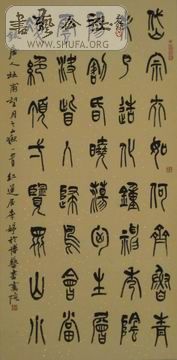 岱宗夫如何齊魯青
未了造化鍾神秀陰
陽割昏曉盪胸生層
雲決眥入歸鳥會當
凌絕頂一覽眾山小
唐人杜甫望
一首
© WWW.SHUFA.ORG